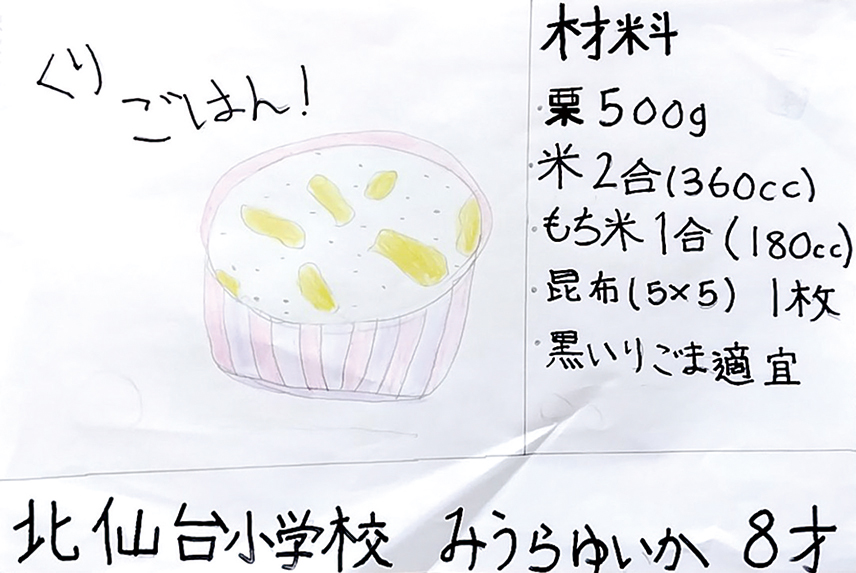 くり
ごはん!
材料
・栗500g
・米2合(360cc)
・もち米1合(180cc)
・昆布(5×5) 1枚
・黒いりごま適宜
北仙台小学校 みうらゆいか 8才